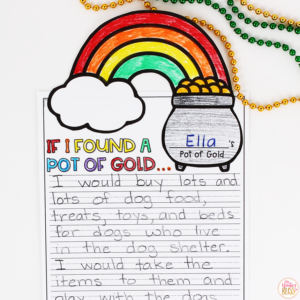 Ella 's
Pot of Gold
IF I FOUND A
POT OF GOLD...
I would buy lots and
lots of dog food,
treats, toys, and beds
for dogs who live
in the dog shelter.
I would take the
items to them and
play with the dogs